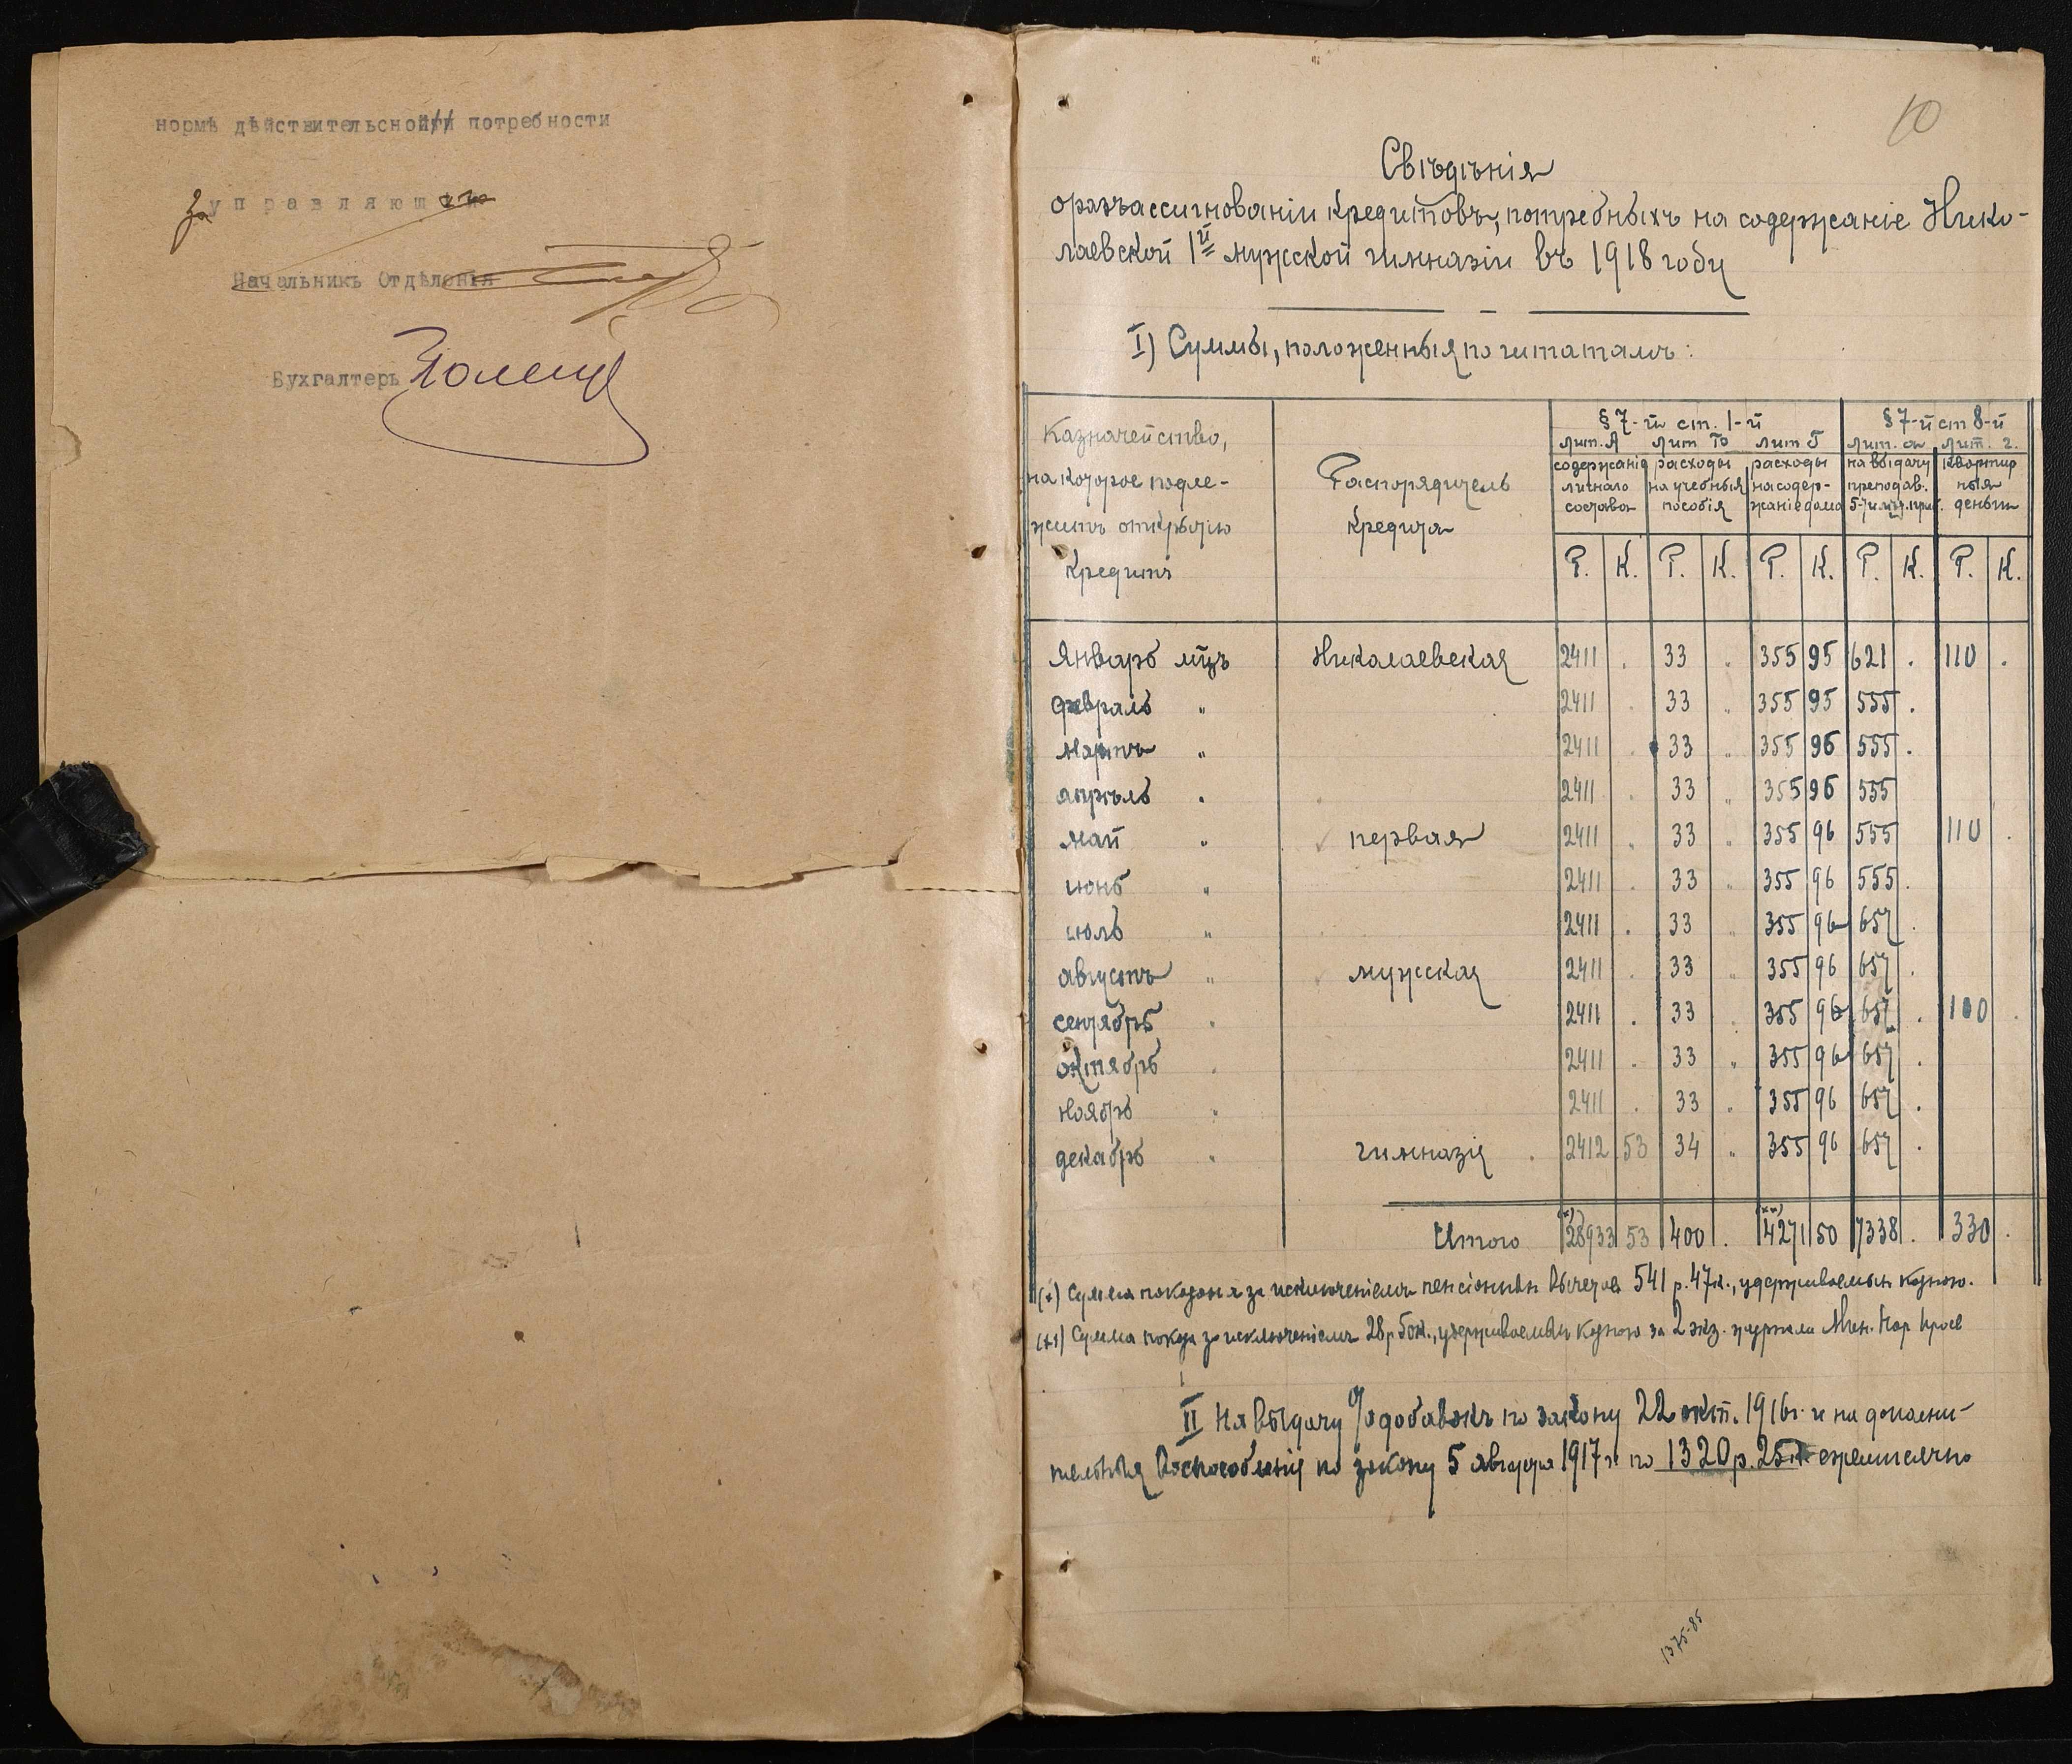 нормѣ дѣйствительсной потребности
За управляющ
Начальникъ Отдѣленія
Бухгалтеръ
10
Свѣдѣнія
о разъассигнованіи кредитовъ, потребныхъ на содержаніе Нико-
лаевской 1й мужской гимназіи въ 1918 году
I) Суммы, положенныя по штатамъ:
Казначейство, на которое подле- житъ открытію кредитъ
Распорядитель кредита
§ 7-й ст. 1-й
§ 7-й ст 8-й
лит. А лит Б лит Г лит. а лит. г.
содержаніе личнаго состава
расходы на учебныя пособія
расходы на содер- жаніе дома
на выдачу преподав.
квартир ныя деньги
Р. К. Р. К. Р. К. Р. К. Р. К.
Январь мцъ Николаевская 2411 . 33 „ 355 95 621 . 110 .
февраль „ 2411 . 33 „ 355 95 555 .
мартъ „ 2411 . 33 „ 355 96 555 .
апрѣль „ 2411 . 33 „ 355 96 555
май „ первая 2411 „ 33 „ 355 96 555 110 .
іюнь „ 2411 . 33 „ 355 96 555 .
іюль „ 2411 . 33 „ 355 96 657 .
августъ „ мужская 2411 . 33 „ 355 96 657 .
сентябрь „ 2411 . 33 „ 355 96 657 . 110 .
октябрь „ 2411 . 33 „ 355 96 657 .
ноябрь „ 2411 . 33 „ 355 96 657 .
декабрь „ гимназія . 2412 53 34 „ 355 96 657 .
Итого *) 28933 53 400 . **) 4271 50 7338 . 330 .
(*) Сумма показана за исключеніемъ пенсіонныхъ вычетовъ 541 р. 47 к., удерживаемыхъ казною.
(**) Сумма показ за исключеніемъ 28 р 50 к., удерживаемыхъ казною за 2 экз. журнала Мин. Нар Просв
II На выдачу % добавокъ по закону 22 окт. 1916 г. и на дополни-
тельныя вспособленія по закону 5 августа 1917 г. по 1320 р. 25 к. ежемесячно
1375-85